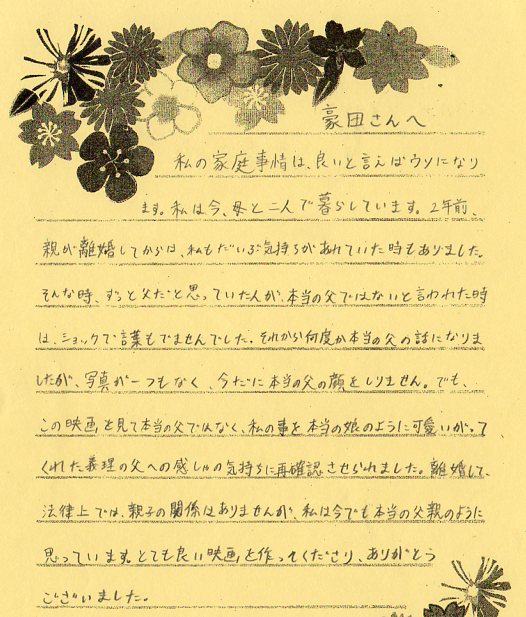 豪田さんへ
私の家庭事情は、良いと言えばウソになり
ます。私は今、母と二人で暮らしています。2年前、
親が離婚してからは、私もだいぶ気持ちがあれていた時もありました。
そんな時、ずっと父だと思っていた人が、本当の父ではないと言われた時
は、ショックで言葉もでませんでした。それから何度か本当の父の話になりま
したが、写真が一つもなく、今だに本当の父の顔をしりません。でも、
この映画を見て本当の父ではなく、私の事を本当の娘のように可愛いがって
くれた義理の父への感しゃの気持ちに再確認させられました。離婚して、
法律上では、親子の関係はありませんが、私は今でも本当の父親のように
思っています。とても良い映画を作ってくださり、ありがとう
ございました。